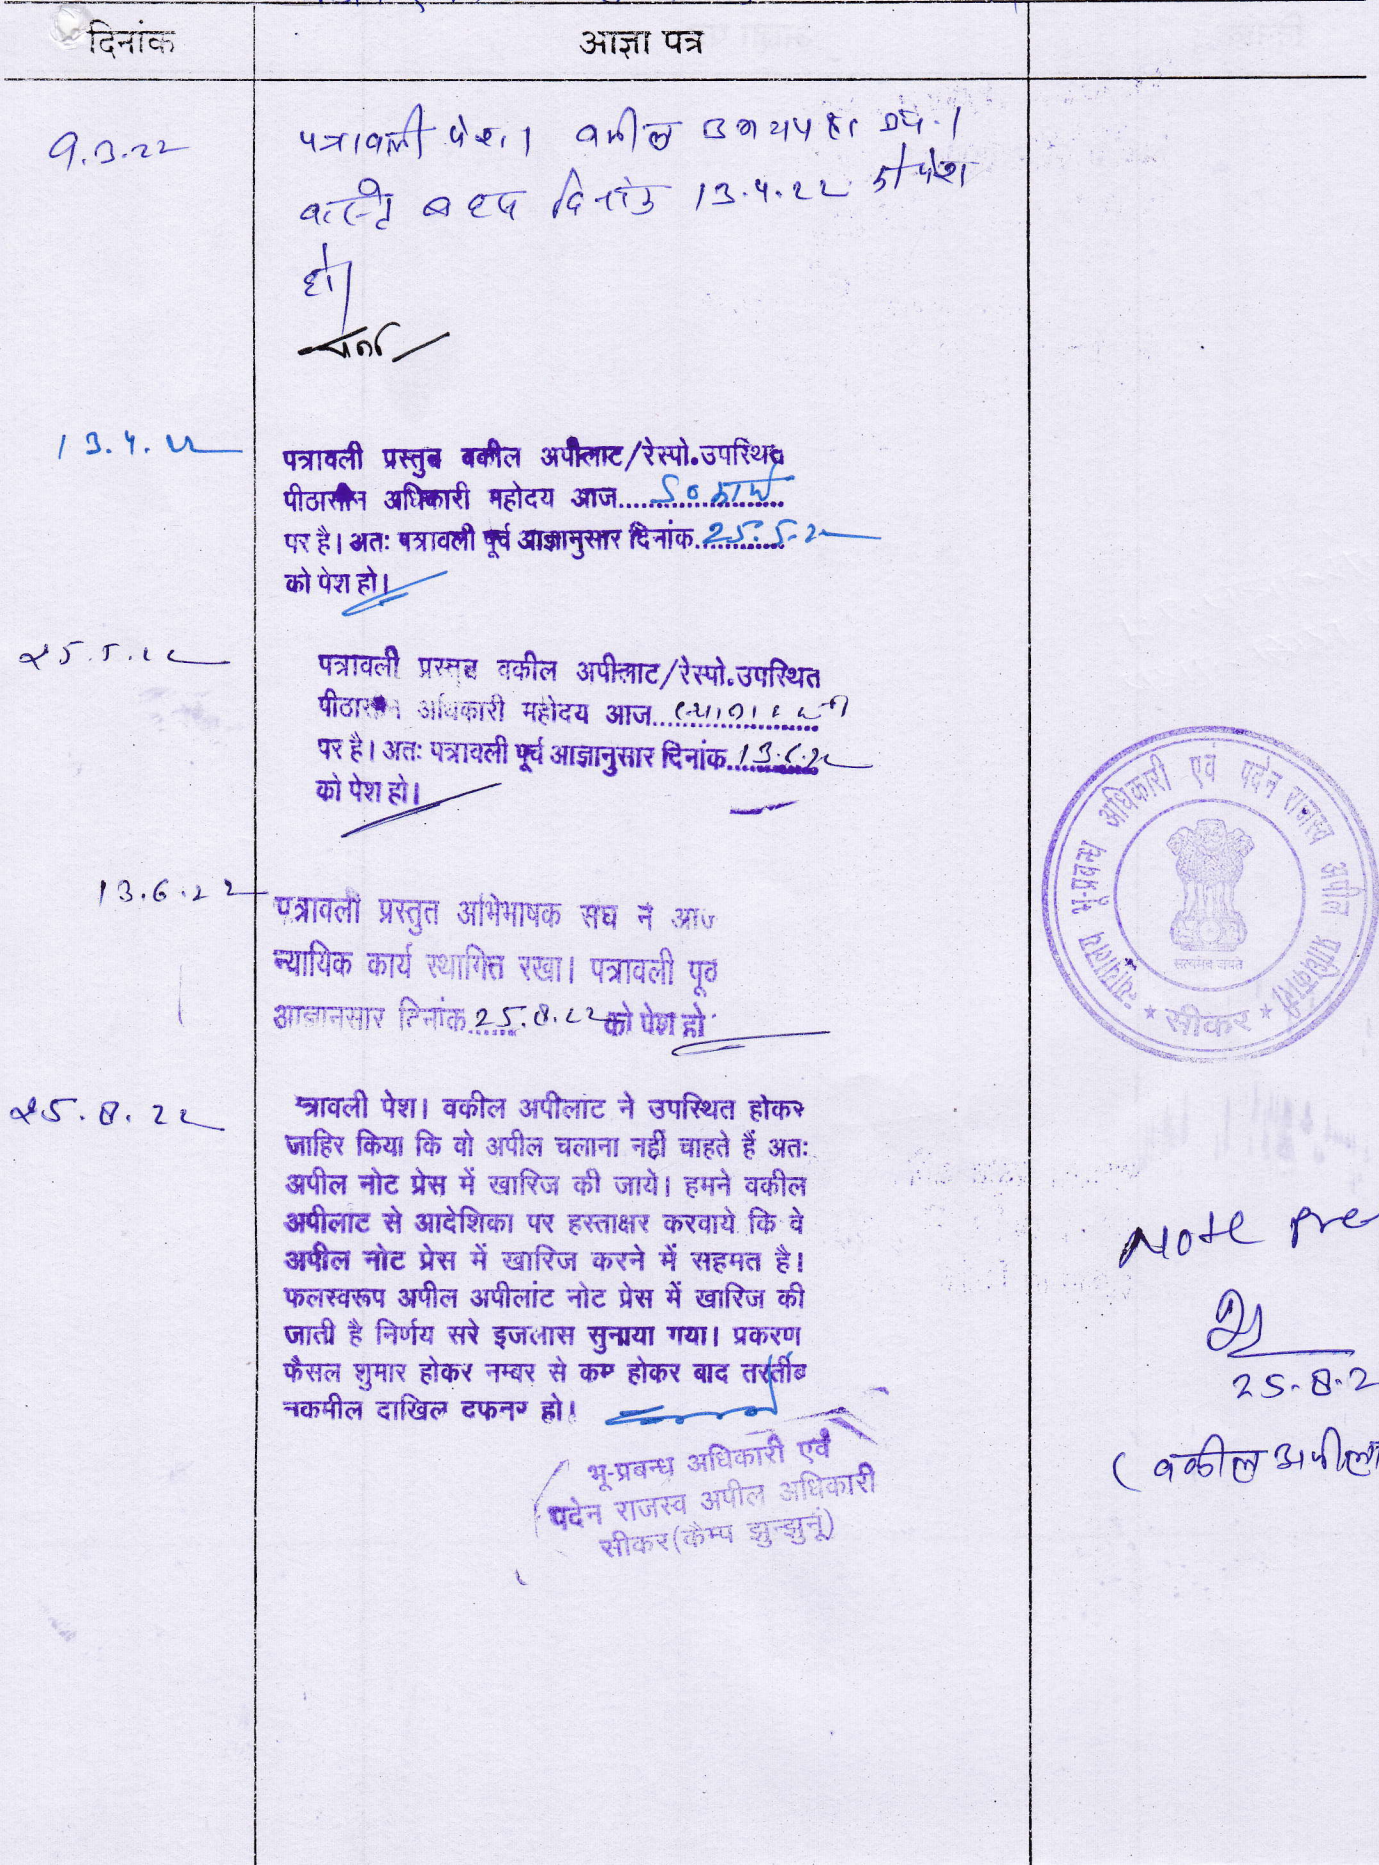 दिनांक
आज्ञा पत्र
9.3.22
पत्रावली पेश। वकील उभयपक्ष उप.।
वास्ते बहस दिनांक 13.4.22 को पेश
हो।
13.4.22
पत्रावली प्रस्तुत वकील अपीलाट/रेस्पो.उपस्थित
पीठासीन अधिकारी महोदय आज..................
पर है। अतः पत्रावली पूर्व आज्ञानुसार दिनांक 25.5.22
को पेश हो।
25.5.22
पत्रावली प्रस्तुत वकील अपीलाट/रेस्पो.उपस्थित
पीठासीन अधिकारी महोदय आज..................
पर है। अतः पत्रावली पूर्व आज्ञानुसार दिनांक 13.6.22
को पेश हो।
13.6.22
पत्रावली प्रस्तुत अभिभाषक संघ ने आज
न्यायिक कार्य स्थागित रखा। पत्रावली पूर्व
आज्ञानसार दिनांक 25.8.22 को पेश हो
न्यायालय भू-प्रबन्ध अधिकारी एवं पदेन राजस्व अपील प्राधिकारी
सत्यमेव जयते
* सीकर *
25.8.22
त्रावली पेश। वकील अपीलांट ने उपस्थित होकर
जाहिर किया कि वो अपील चलाना नहीं चाहते हैं अतः
अपील नोट प्रेस में खारिज की जाये। हमने वकील
अपीलाट से आदेशिका पर हस्ताक्षर करवाये कि वे
अपील नोट प्रेस में खारिज करने में सहमत है।
फलस्वरूप अपील अपीलांट नोट प्रेस में खारिज की
जाती है निर्णय सरे इजलास सुनाया गया। प्रकरण
फैसल शुमार होकर नम्बर से कम होकर बाद तरतीब
तकमील दाखिल दफतर हो।
Note pre
25.8.2
(वकील अपीला
भू-प्रबन्ध अधिकारी एवं
पदेन राजस्व अपील अधिकारी
सीकर(कैम्प झुन्झुनूं)